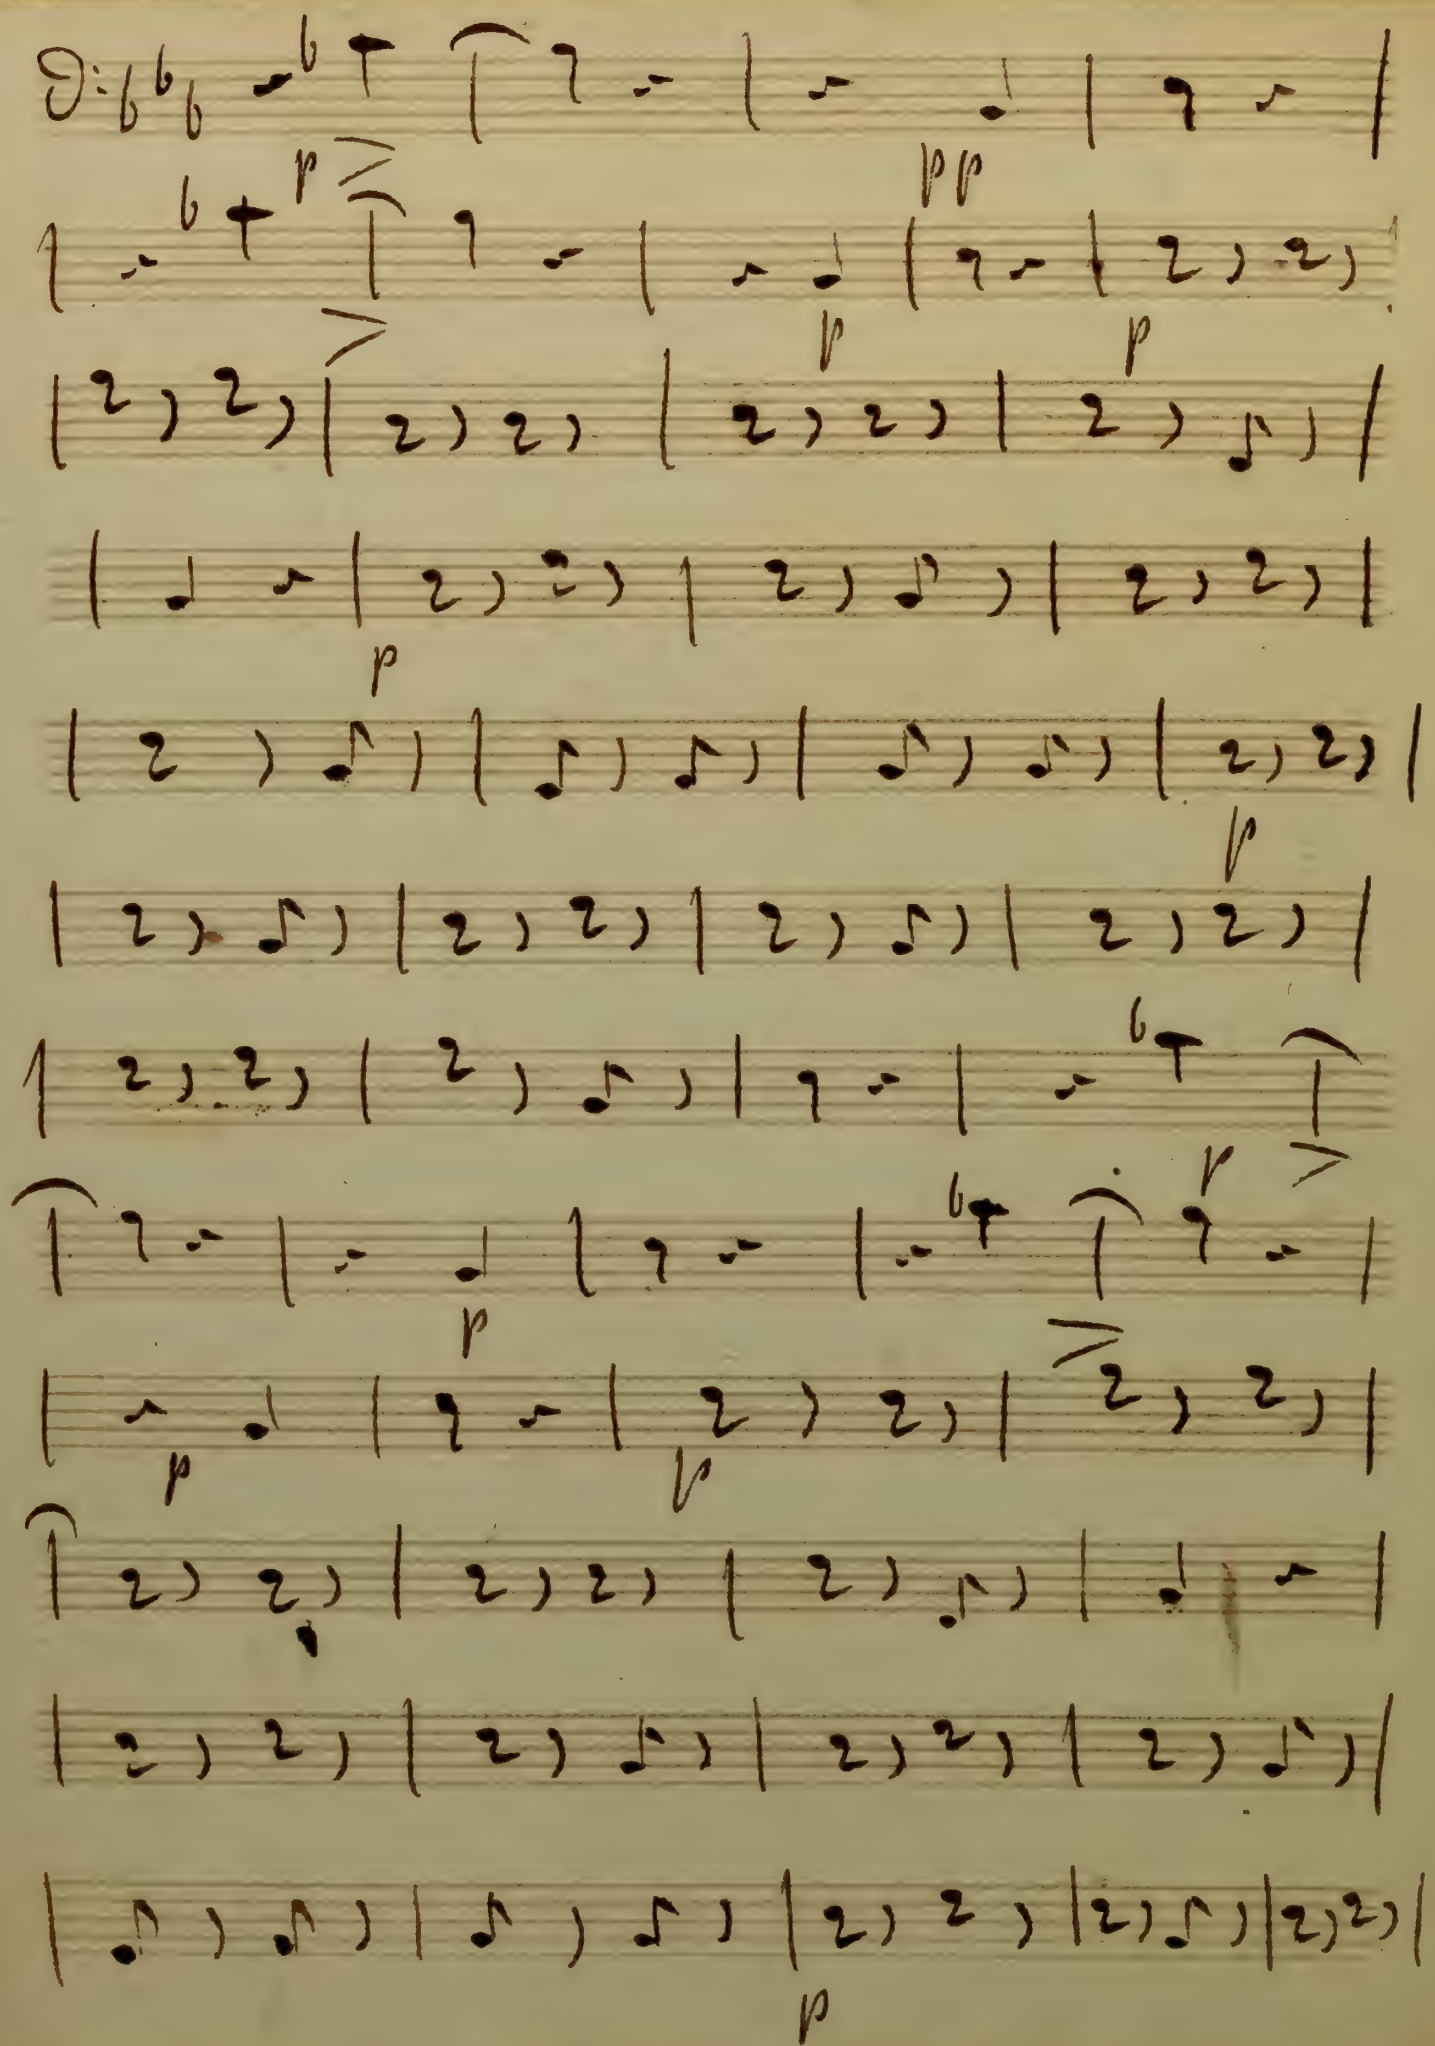 p
pp
p
p
p
p
p
p
p
p
p